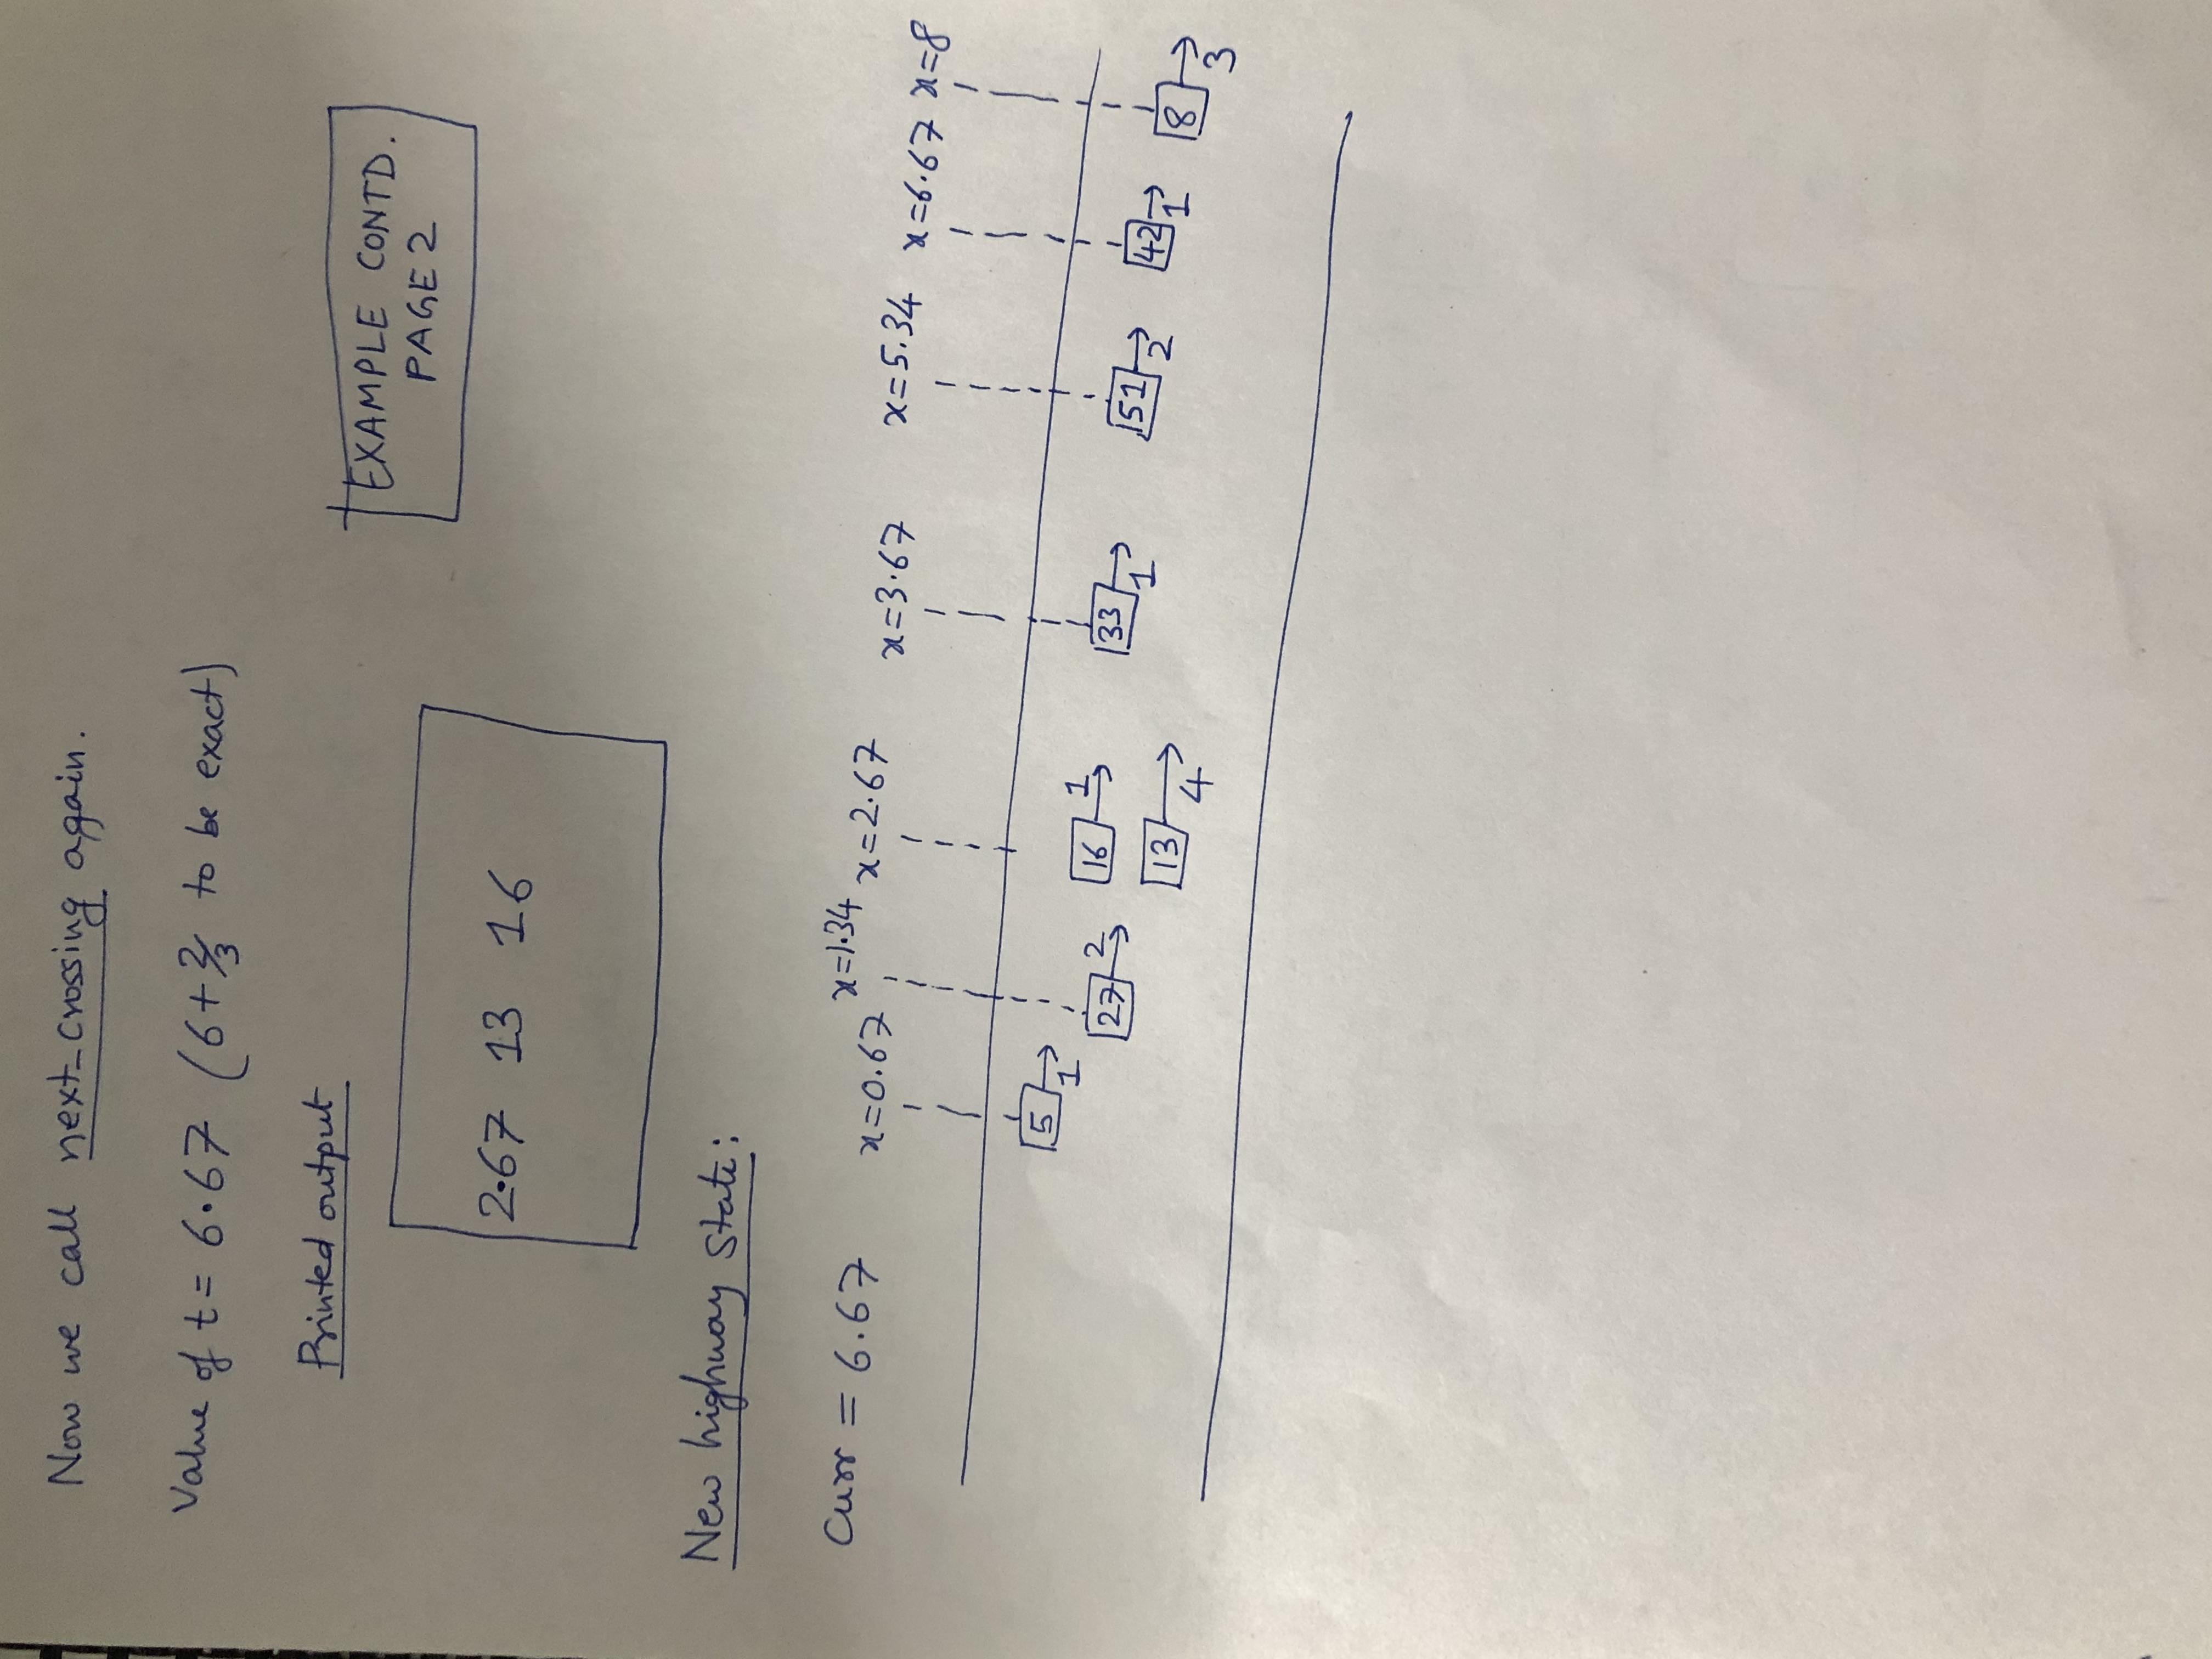 Now we call next_crossing again.
Value of t = 6.67 (6+2/3 to be exact)
Printed output
EXAMPLE CONTD.
PAGE 2
2.67 13 16
New highway state:
Curr = 6.67
x=0.67 x=1.34 x=2.67 x=3.67 x=5.34 x=6.67 x=8
5 1
27 2
16 1
13 4
33 1
51 2
42 1
8 3